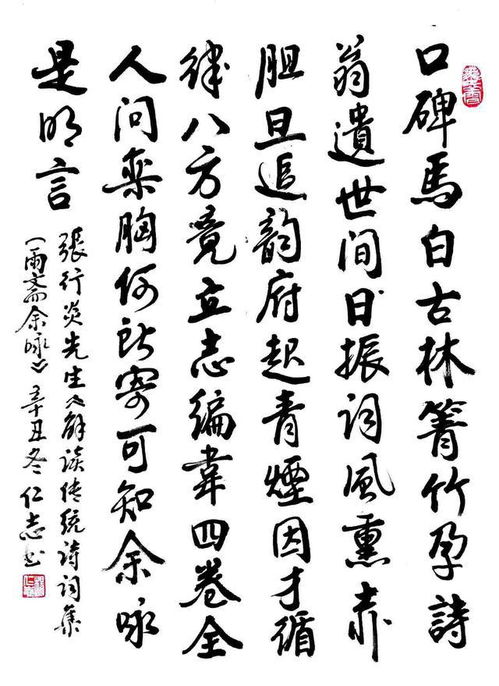 口碑馬白古林箐竹孕詩
翁遺世間日振詞風熏赤
胆旦追韵府起青煙因才循
律八方竟立志編韋四卷全
人问栾胸何所寄可知余咏
是明言
張行炎先生谈传统詩词集
《雨斋余咏》辛丑冬仁志书